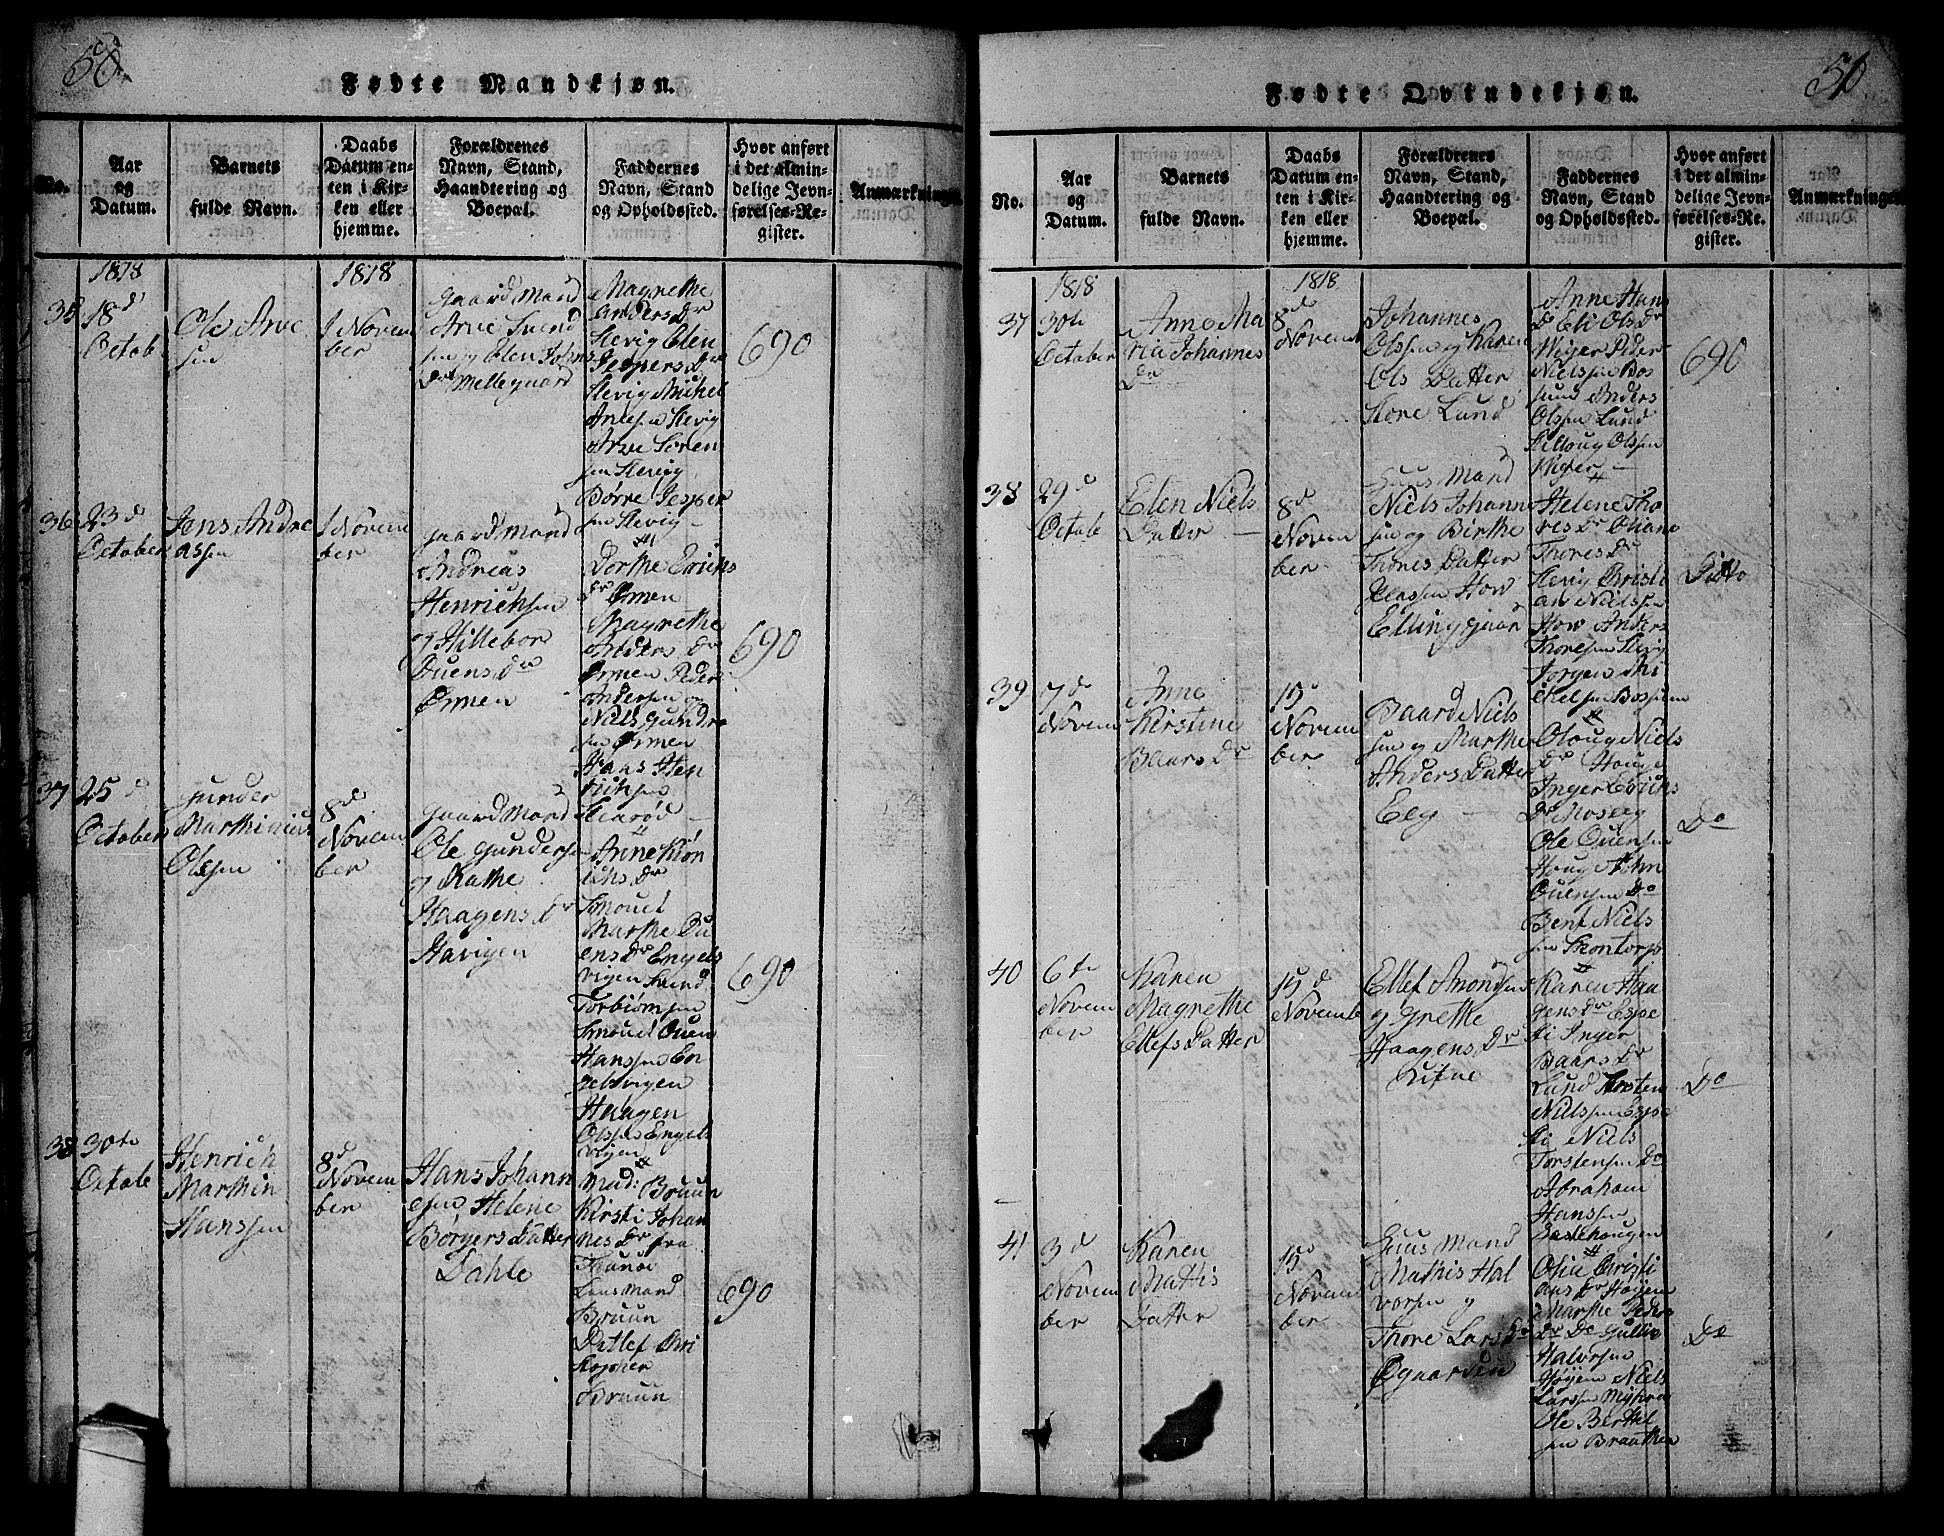 50
Fødte Mandkjøn.
No.
Aar
og
Datum.
Barnets
fulde Navn.
Daabs
Datum en-
ten i Kir-
ken eller
hjemme.
Forældrenes
Navn, Stand,
Haandtering og
Boepæl.
Faddernes
Navn, Stand
og Opholdssted.
Hvor anført
i det almin-
delige Jevn-
førelses-Re-
gister.
Anmærkninger.
1818
35
18d
Octob
Ole Arve
sen
1818
1 Novem
ber
gaardmand
Arve Svend
sen og Elen Johns
Dr Mellegaard
Magrethe
Anders Dr
Slevig Elen
Jespers Dr
Slevig Michel
Anesen Slevig
Arve Søren
sen Slevig
Børre Jesper
sen Slevig
690
36
23d
October
Jens Andre
assen
1 Novem
ber
gaardmand
Andreas
Henrichsen
og Hillebor
Ouens Dr
Ørmen
Dorthe Erichs
Dr Ørmen
Magrethe
Anders Dr
Ørmen Peder
Andersen og
Niels Gundr
sen Ørmen
Haas Hen
richsen
690
37
25d
October
gunder
Marthinius
Olesen
8d
Novem
ber
gaardmand
Ole gundersen
og Kathe
Haagens Dr
Havigen
Anne
Dr
Smouel
Marthe Ou
ens Dr Engels
vigen Svend
Torbiørnsen
Smouel Ouen
Hanssen En
gelsvigen
Haagen
Olssen Engels
vigen
690
38
30te
Octobe
Henrich
Marthin
Hanssen
8d
Novem
ber
Hans Johann
esen Helene
Børgers Datter
Dahle
Mad: Bruun
Kirsti Johan
nes Dr fra
Lensmand
Bruun
Detlef Chri
stopher
Bruun
690
50
Fødte Qvindekjøn.
No.
Aar
og
Datum.
Barnets
fulde Navn.
Daabs
Datum en-
ten i Kir-
ken eller
hjemme.
Forældrenes
Navn, Stand,
Haandtering og
Boepæl.
Faddernes
Navn, Stand
og Opholdssted.
Hvor anført
i det almin-
delige Jevn-
førelses-Re-
gister.
Anmærkninger
1818
37
30te
October
Anne Ma
ria Johannes
Dr
1818
8d
Novemb
Johannes
Olssen og Karen
Ols Datter
Store Lund
Anne Hans
Dr Eli Ols Dr
Wiger Peder
Nielsen Bos
sund Anders
Olssen Lund
Olssen
Wiger
690
38
29d
Octobe
Elen Niels
Datter
8d
Novem
ber
Huus Mand
Niels Johann
sen og Birthe
Thores Datter
Elinggaar
Helene Tho
res Dr Oliane
Thores Dr
Slevig Christi
an Nielssen
How Anders
Thoresen Slevig
Jørgen Mi
chelsen Bossum
Ditto
39
7d
Novem
Anne
Kirstine
Baars Dr
15d
Novem
ber
Baard Niels
sen og Marthe
Anders Datter
Elg
Oloug Niels
Dr Houge
Inger Erichs
Dr Moseby
Ole Ouensen
Houg John
Ouensen Do
Bent Niels
sen Thontorp
Do
40
6te
Novem
ber
Karen
Magrethe
Ellefs Datter
15d
Novembe
Ellef Amondsen
og Grethe
Haagens Dr
Karen Haa
gens Dr Espe
li Inger
Baars Dr
Lund Torsten
Nielssen Espe
li Niels
Torstensen Do
Abraham
Hanssen
Do
41
3d
Novem
ber
Karen
Mathis
Datter
15d
Novem
ber
Huus Mand
Mathis Hal
vorsen og
Thore Lars Dr
Øgaarden
Olia Christi
ans Dr Høyen
Marthe Peders
Dr Do Gullic
Halvorsen
Høyen Niels
Larssen
Ole Berthel
sen Braathen
Do